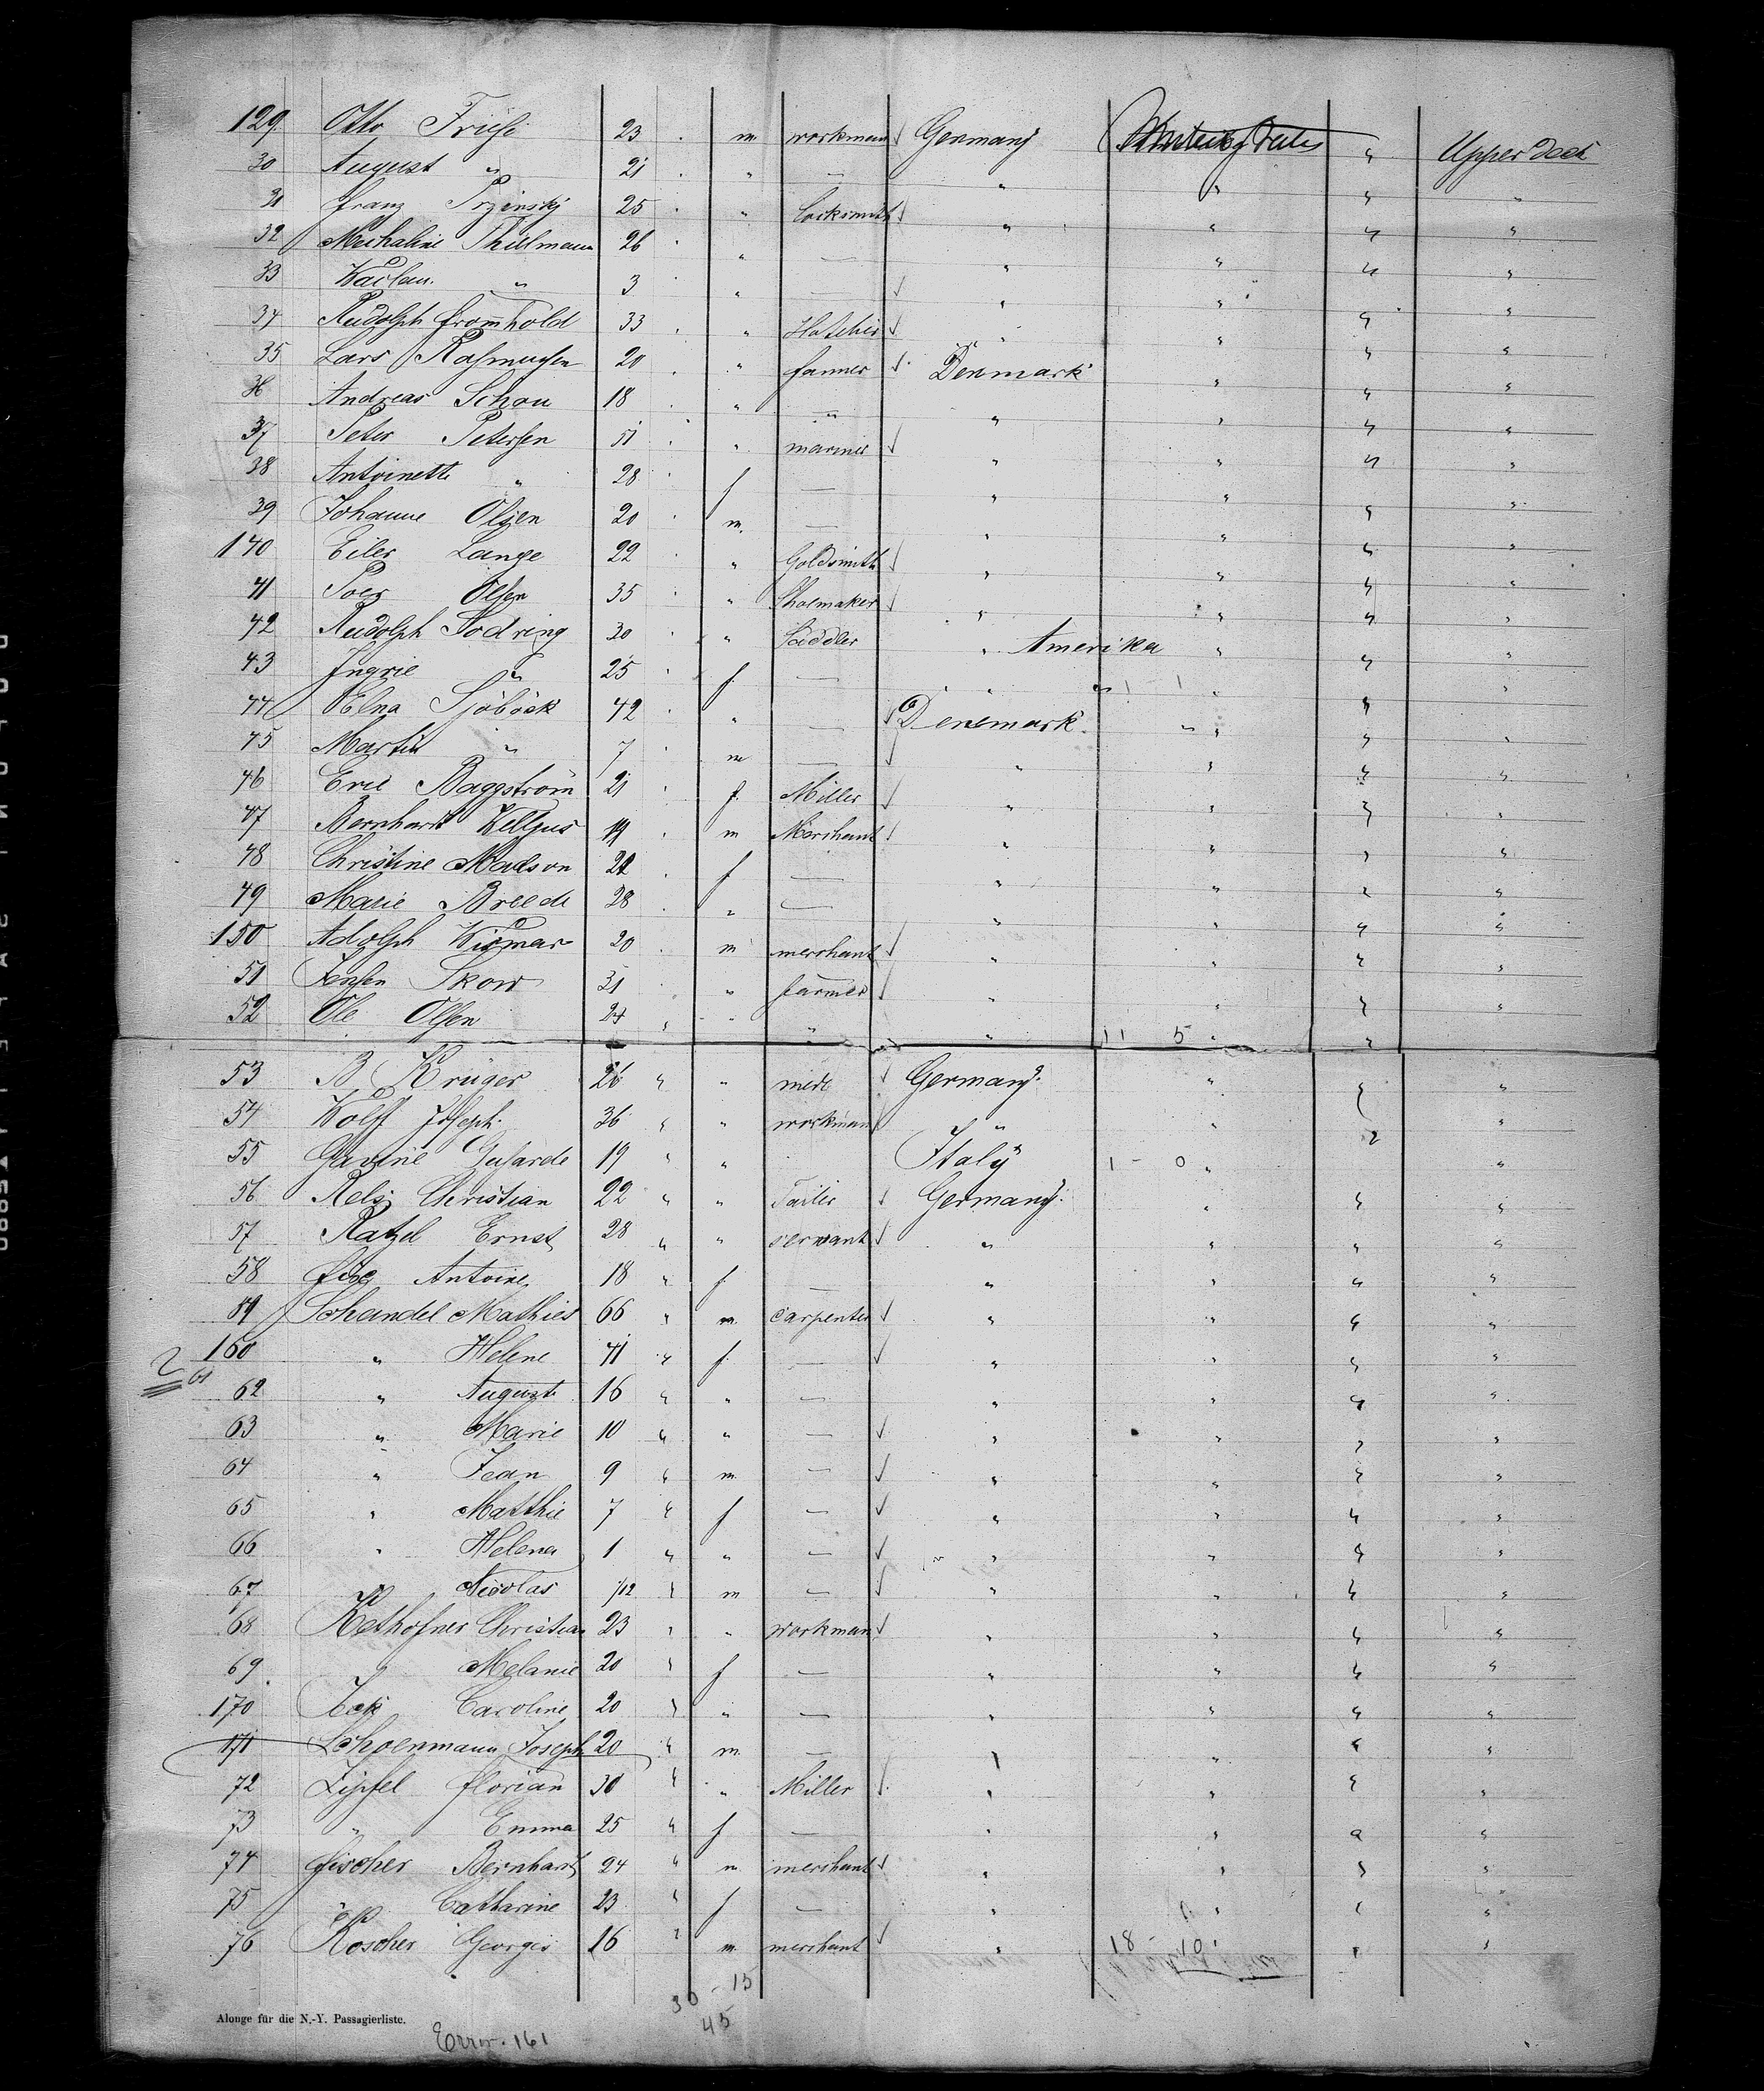 129. Otto Friese 23 . m workman √ Germany United States " Upper deck
30 August " 21 . " — " " " "
31 Franz 25 . " Locksmith √ " " " "
32 Michaline Thielmann 26 . " — " " " "
33 " 3 . " — √ " " " "
34 Rudolph Fromhold 33 . " √ " " " "
35 Lars Rasmussen 20 . " farmer √ Denmark " " "
36 Andreas Schou 18 . " " " " " "
37 Peter Petersen 51 . " mariner √ " " " "
38 Antoinette " 28 . f — " " " "
39 Johanne Olsen 20 . m. — " " " "
140 Eiler Lange 22 . " Goldsmith √ " " " "
41 Olsen 35 . " Shoemaker √ " " " "
42 Rudolph Sodring 30 . " Saddler " Amerika " " "
43 Ingrie " 25 . f. — " " 1 - 1 " " "
44 Elna Sjöböck 42 . " — √ Denemark " " "
45 Martin " 7 . m — √ " " " "
46 Eric Baggström 21 . f. Miller √ " " " "
47 Bernhard 19 . m Merchant √ " " " "
48 Christine Madson 21 . f — " " " "
49 Marie Breede 28 . " — " " " "
150 Adolph Wismar 20 . m merchant √ " " " "
51 Jensen Skow 31 . " farmer √ " " " "
52 Ole Olsen 24 " " " " 11 5 " "
53 B. Krüger 26 " " √ Germany. " " "
54 Wolff Joseph. 36 " " workman √ " " " "
55 Gavine 19 " " Italy 1 - 0 " " "
56 Christian 22 " " Tailer √ Germany. " " "
57 Ratzel Ernst 28 " " servant √ " " " "
58 Antoine 18 " f. — " " " "
59 Schandel Mathies 66 " m. carpenter √ " " " "
160 " Helene 41 " f. — √ " " " "
2 61
62 " Auguste 16 " " — " " " "
63 " Marie 10 " " — √ " " " "
64 " Jean 9 " m. — √ " " " "
65 " Matthie 7 " f — √ " " " "
66 " Helena 1 " " — √ " " " "
67 " Nicolas 1/12 " m — √ " " " "
68 Kethofner Christian 23 " " workman √ " " " "
69. " Melanie 20 " f — " " " "
170 Caroline 20 " " — " " " "
171 Schoenmann Joseph 20 " m. — " " " "
72 Zipfel Florian 30 " " Miller √ " " " "
73 " Emma 25 " f — " " " "
74 Fischer Bernhard 24 " m merchant √ " " " "
75 " Catharine 23 " f — " " " "
76 Roscher Georges 16 " m merchant √ " 18 - 10 " " "
30 - 15
45
Alonge für die N.-Y. Passagierliste.
Error. 161